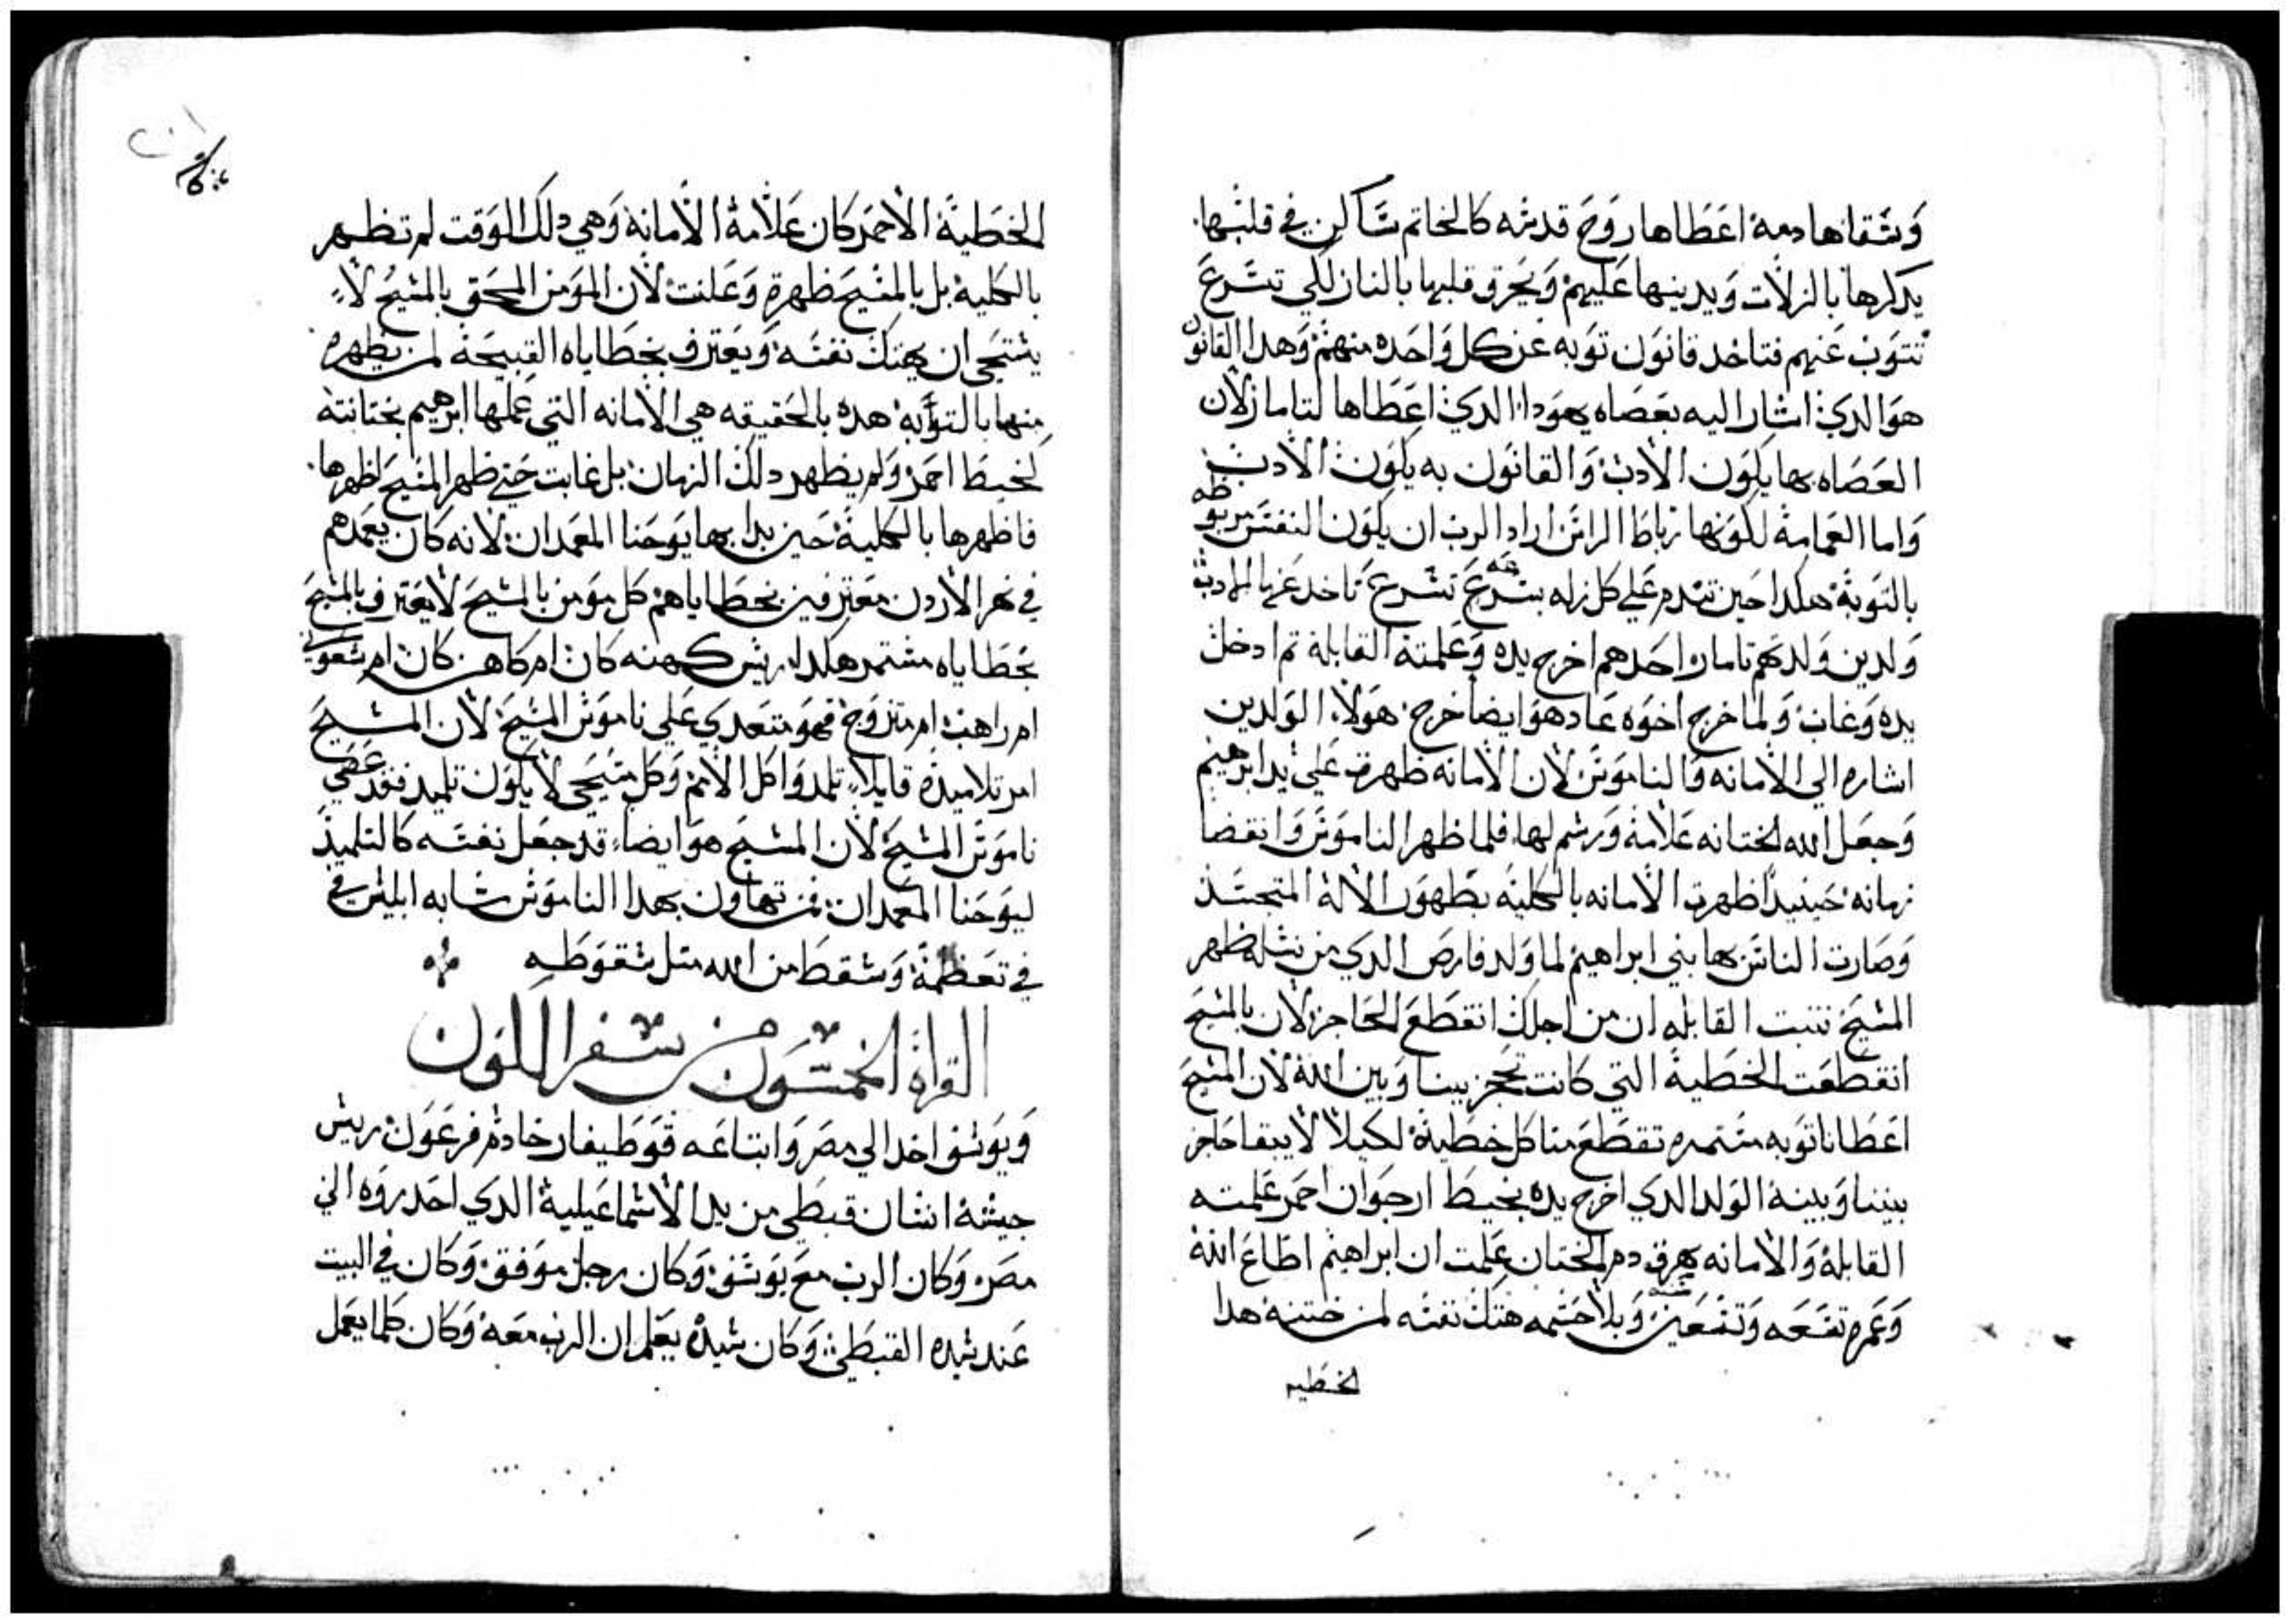 وسقاها دمه اعطاها روح قدسه كالخاتم ساكن في قلبها
يدكرها بالزلات ويدينها عليهم ويحرق قلبها بالنار لكي تسرع
تتوب عنهم فتاخد قانون توبه عن كل واحده منهم وهدا القانون
هو الدي اشار اليه بعصاه يهودا الدي اعطاها لتامار لان
العصاه بها يكون الادب والقانون به يكون الادب
واما العمامة لكونها رباط الراس اراد الرب ان يكون النفس مربوطه
بالتوبة هكدا حين تندم علي كل زله بسرعه تسرع تاخد عنها الادب
ولدين ولدتهم تامار احدهم اخرج يده وعلمته القابلة تم ادخل
يده وغاب ولما خرج اخوه عاد هو ايضا خرج هولاء الولدين
اشاره الي الامانه والناموس لان الامانه ظهرت علي يد ابرهيم
وجعل الله الختانه علامة ورشم لها فلما ظهر الناموس وانقضا
زمانه حينيد ظهرت الامانه بالكلية بظهور الاله المتجسد
وصارت الناس بها بني ابراهيم لما ولد فارص الدي من نسله ظهر
المسيح تنبت القابله ان من اجلك انقطع الحاجز لان بالمسيح
انقطعت الخطية التي كانت تحجز بيننا وبين الله لان المسيح
اعطانا توبه مستمره تقطع منا كل خطية لكيلا لا يبقا حاجز
بيننا وبينه الولد الدي اخرج يده بخيط ارجوان احمر علمته
القابلة والامانه بهرق دم الختان علمت ان ابراهيم اطاع الله
وعمره تسعه وتسعين سنه وبلا حشمه هتك نفسه لمن ختنه هدا
الخطيه
الخطية الاحمر كان علامة الامانة وهي دلك الوقت لم تظهر
بالكلية بل بالمسيح ظهرة وعلنت لان المومن المحق بالمسيح لا
يستحي ان يهتك نفسه ويعترف بخطاياه القبيحة لمن يطهره
منها بالتوبة هده بالحقيقه هي الامانه التي عملها ابرهيم بختانته
لخيط احمر ولم يظهر دلك الزمان بل غابت حتي ظهر المسيح اظهرها
فاظهرها بالكلية حين بدا بها يوحنا المعمدان لانه كان يعمدهم
في نهر الاردن معترفين بخطاياهم كل مومن بالمسيح لا يعترف بالمسيح
بخطاياه مستمر هكدا ريس كهنه كان ام كاهن كان ام شعوبي
ام راهب ام متزوج فهو متعدي علي ناموس المسيح لان المسيح
امر تلاميده قايلا تلمدوا كل الامم وكل مسيحي لا يكون تلميد فقد عصي
ناموس المسيح لان المسيح هو ايضا قد جعل نفسه كالتلميد
ليوحنا المعمدان فمن تهاون بهدا الناموس شابه ابليس في
في تعظمة وسقط من الله متل سقوطه
القراة الخمسون من سفر اللون
ويوسف اخد الي مصر وابتاعه قوطيفار خادم فرعون ريس
جيشة انسان قبطي من يد الاسماعيلية الدي احدروه الي
مصر وكان الرب مع يوسف وكان رجل موفق وكان في البيت
عند سيده القبطي وكان سيده يعلم ان الرب معه وكان كلما يعمل